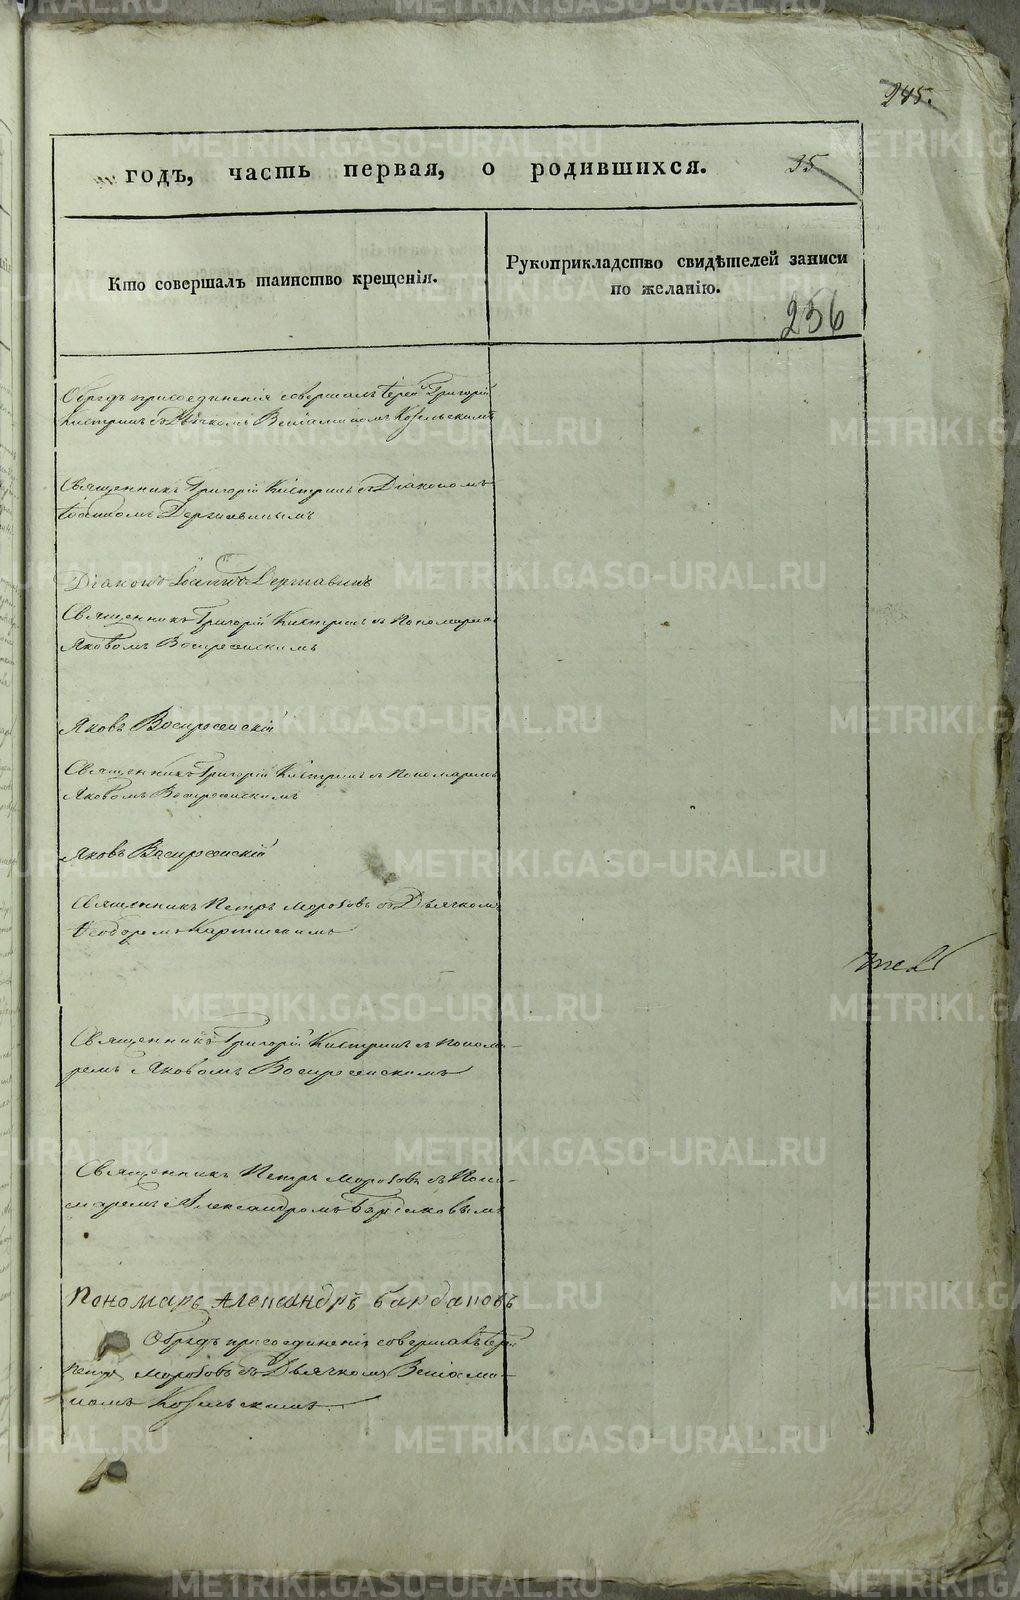 245.
годъ, часть первая, о родившихся. 35
Кто совершалъ таинство крещенія.
Рукоприкладство свидѣтелей записи
по желанію.
256
Обрядъ присоединенія совершалъ Іерей Григорій
съ Дьячкомъ Веніаминомъ Козельскимъ
Священникъ Григорій съ Діакономъ
Іоанномъ Державинымъ
Діаконъ Іоаннъ Державинъ
Священникъ Григорій съ Пономаремъ
Яковомъ Воскресенскимъ
Яковъ Воскресенскій
Священникъ Григорій съ Пономаремъ
Яковомъ Воскресенскимъ
Яковъ Воскресенскій
Священникъ Петръ Морозовъ съ Дьячкомъ
Ѳеодоромъ
Священникъ Григорій съ Понома-
ремъ Яковомъ Воскресенскимъ
Священникъ Петръ Морозовъ съ Поно-
маремъ Александромъ
Пономарь Александръ
Обрядъ присоединенія совершалъ Іерей
Петръ Морозовъ съ Дьячкомъ Веніами-
номъ Козельскимъ
METRIKI.GASO-URAL.RU